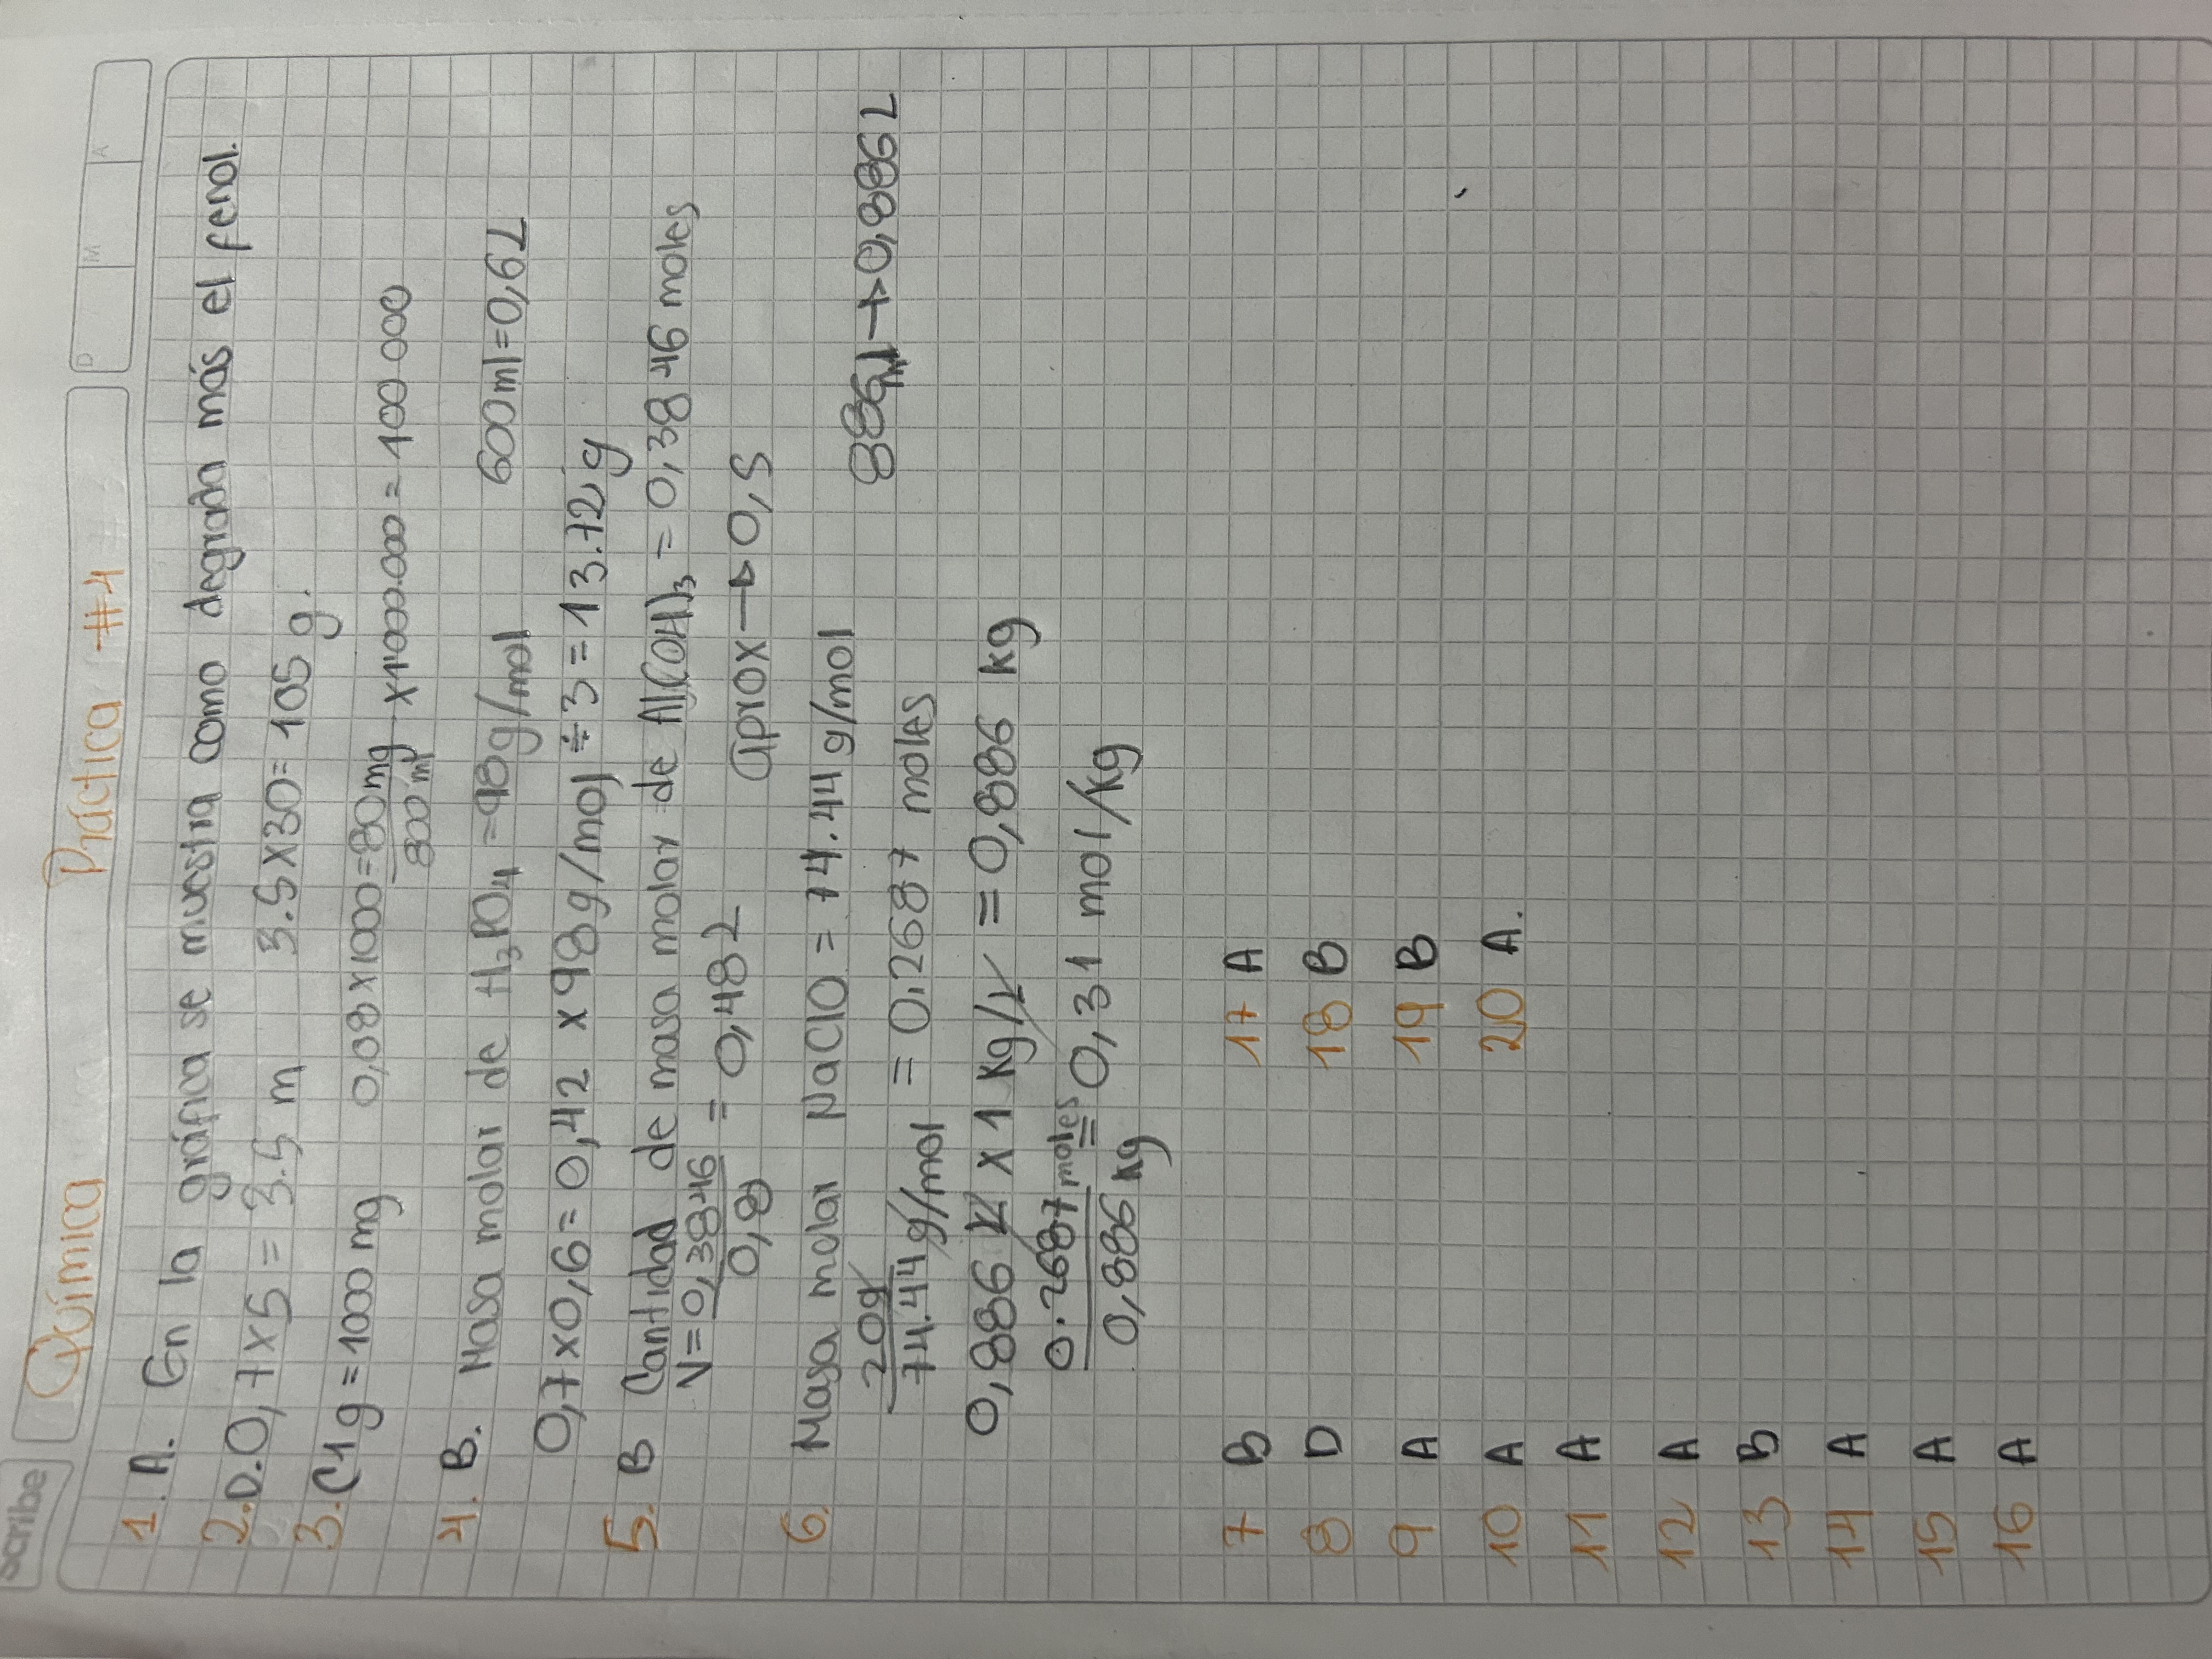 scribe
Química Práctica #4
D M A
1. A. En la gráfica se muestra como degrada más el fenol.
2. D. 0,7x5 = 3.5 m 3.5x30= 105 g.
3. C 1g = 1000 mg 0,08x1000=80mg x1'000.000 = 100 000
800 ml
4. B. Masa molar de H3PO4 =98g/mol 600ml=0,6L
0,7x0,6= 0,42 x98g/mol ÷3 = 13.72 g
5. B Cantidad de masa molar de Al(OH)3 = 0,3846 moles
V= 0,3846 = 0,482 aprox → 0,5
0,8
6. Masa molar NaClO = 74.44 g/mol 886ml → 0,886L
20g = 0,2687 moles
74.44g/mol
0,886 L x 1 Kg/L = 0,886 kg
0.2687 moles = 0,31 mol/Kg
0,886 kg
7 B 17 A
8 D 18 B
9 A 19 B
10 A 20 A.
11 A
12 A
13 B
14 A
15 A
16 A